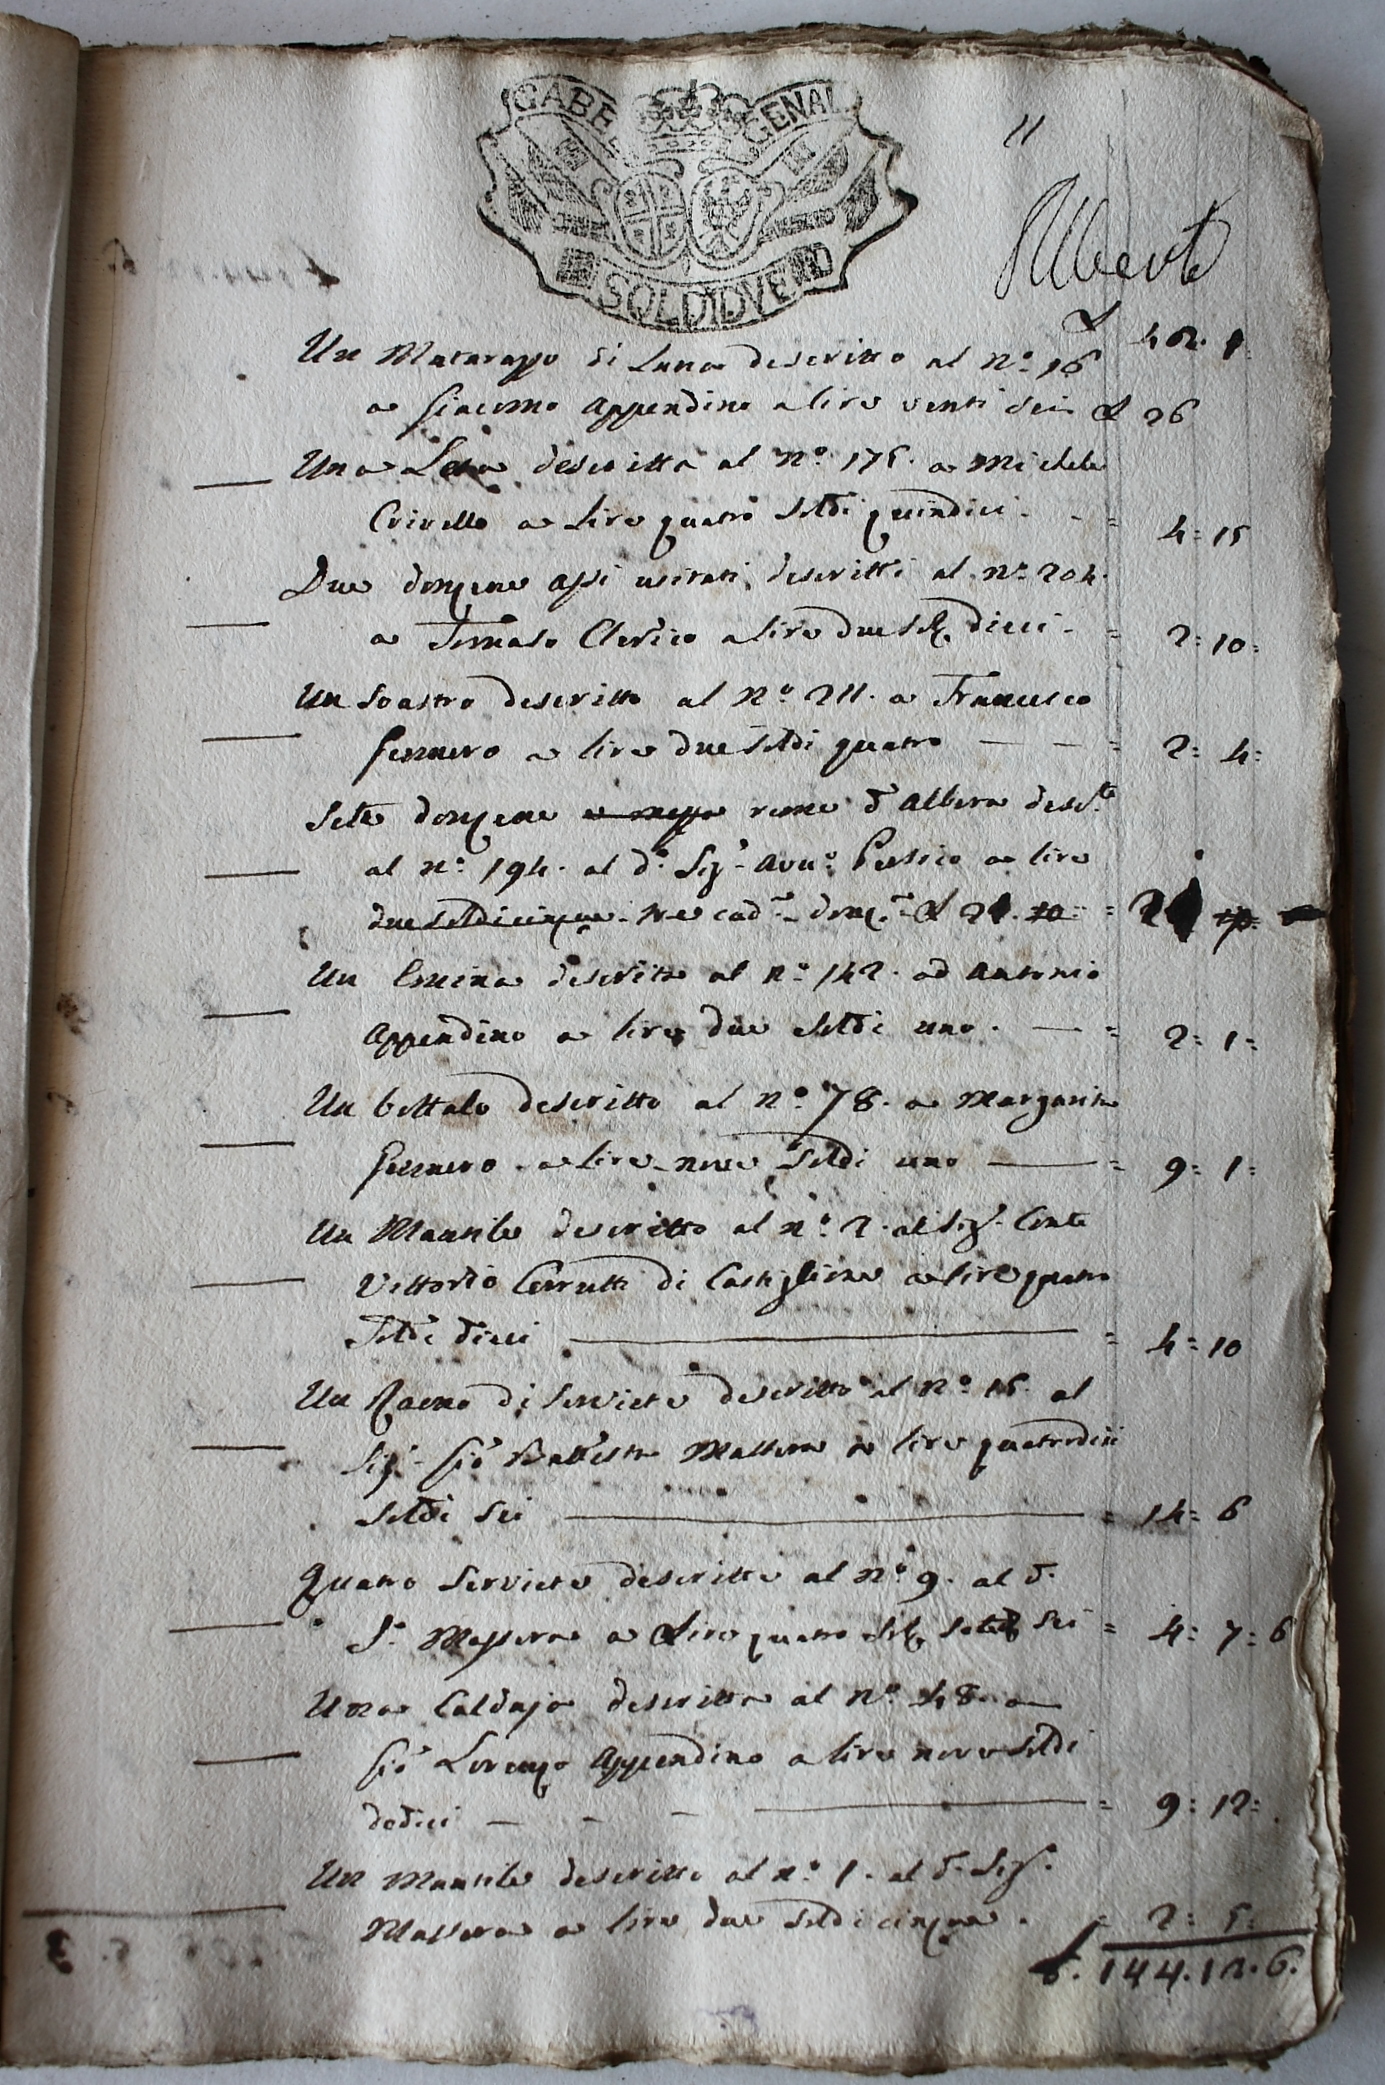 GABE GENAL
11
SOLDI DVE
Alberti
£ 402. 1
Un Matarasso di Lana descritto al N.° 16
a Giacomo Appendino a lire venti sei £ 26
Una descritta al N.° 175. a Michele
Crivello a Lire quatro soldi quindici - - = 4 = 15
Due donzene assi usitati descritti al N.° 204.
a Tomaso Clerico a lire due sol. dieci - = 2 = 10 =
Un Soastro descritto al N.° 211. a Francesco
Gennero a lire due soldi quatro — — = 2 = 4 =
Sette donzene e mezza reme d'Albera
al N.° 194. al d.° Sig.r Avv.° Persico a lire
due soldi cinque tre cad.a donz.a £ 21. 10 = 21
Un Emina descritto al N.° 142. ad Antonio
Appendino a lire due soldi uno. — = 2 = 1 =
Un bottalo descritto al N.° 78. a Margarita
Gennero a lire nove soldi uno — = 9 = 1 =
Un Mantile descritto al N.° 2. al Sig.r Conte
Vittorio Cerrutti di Castiglione a lire quatro
soldi dieci — = 4 = 10
Un di serviete descritto al N.° 15. al
Sig.r Gio Battista Massera a lire quatordici
soldi sei — = 14 = 6
Quatro serviete descritte al N.° 9. al d.°
S.r Massera a Lire quatro sol. sette sei = 4 = 7 = 6
Una Caldaja descritta al N.° 48. a
Gio Lorenzo Appendino a lire nove soldi
dodici — - - — = 9 = 12 =
Un Mantile descritto al N.° 1. al d.° Sig.r
Massera a lire due soldi cinque. = 2 = 5 =
£. 144. 12. 6.